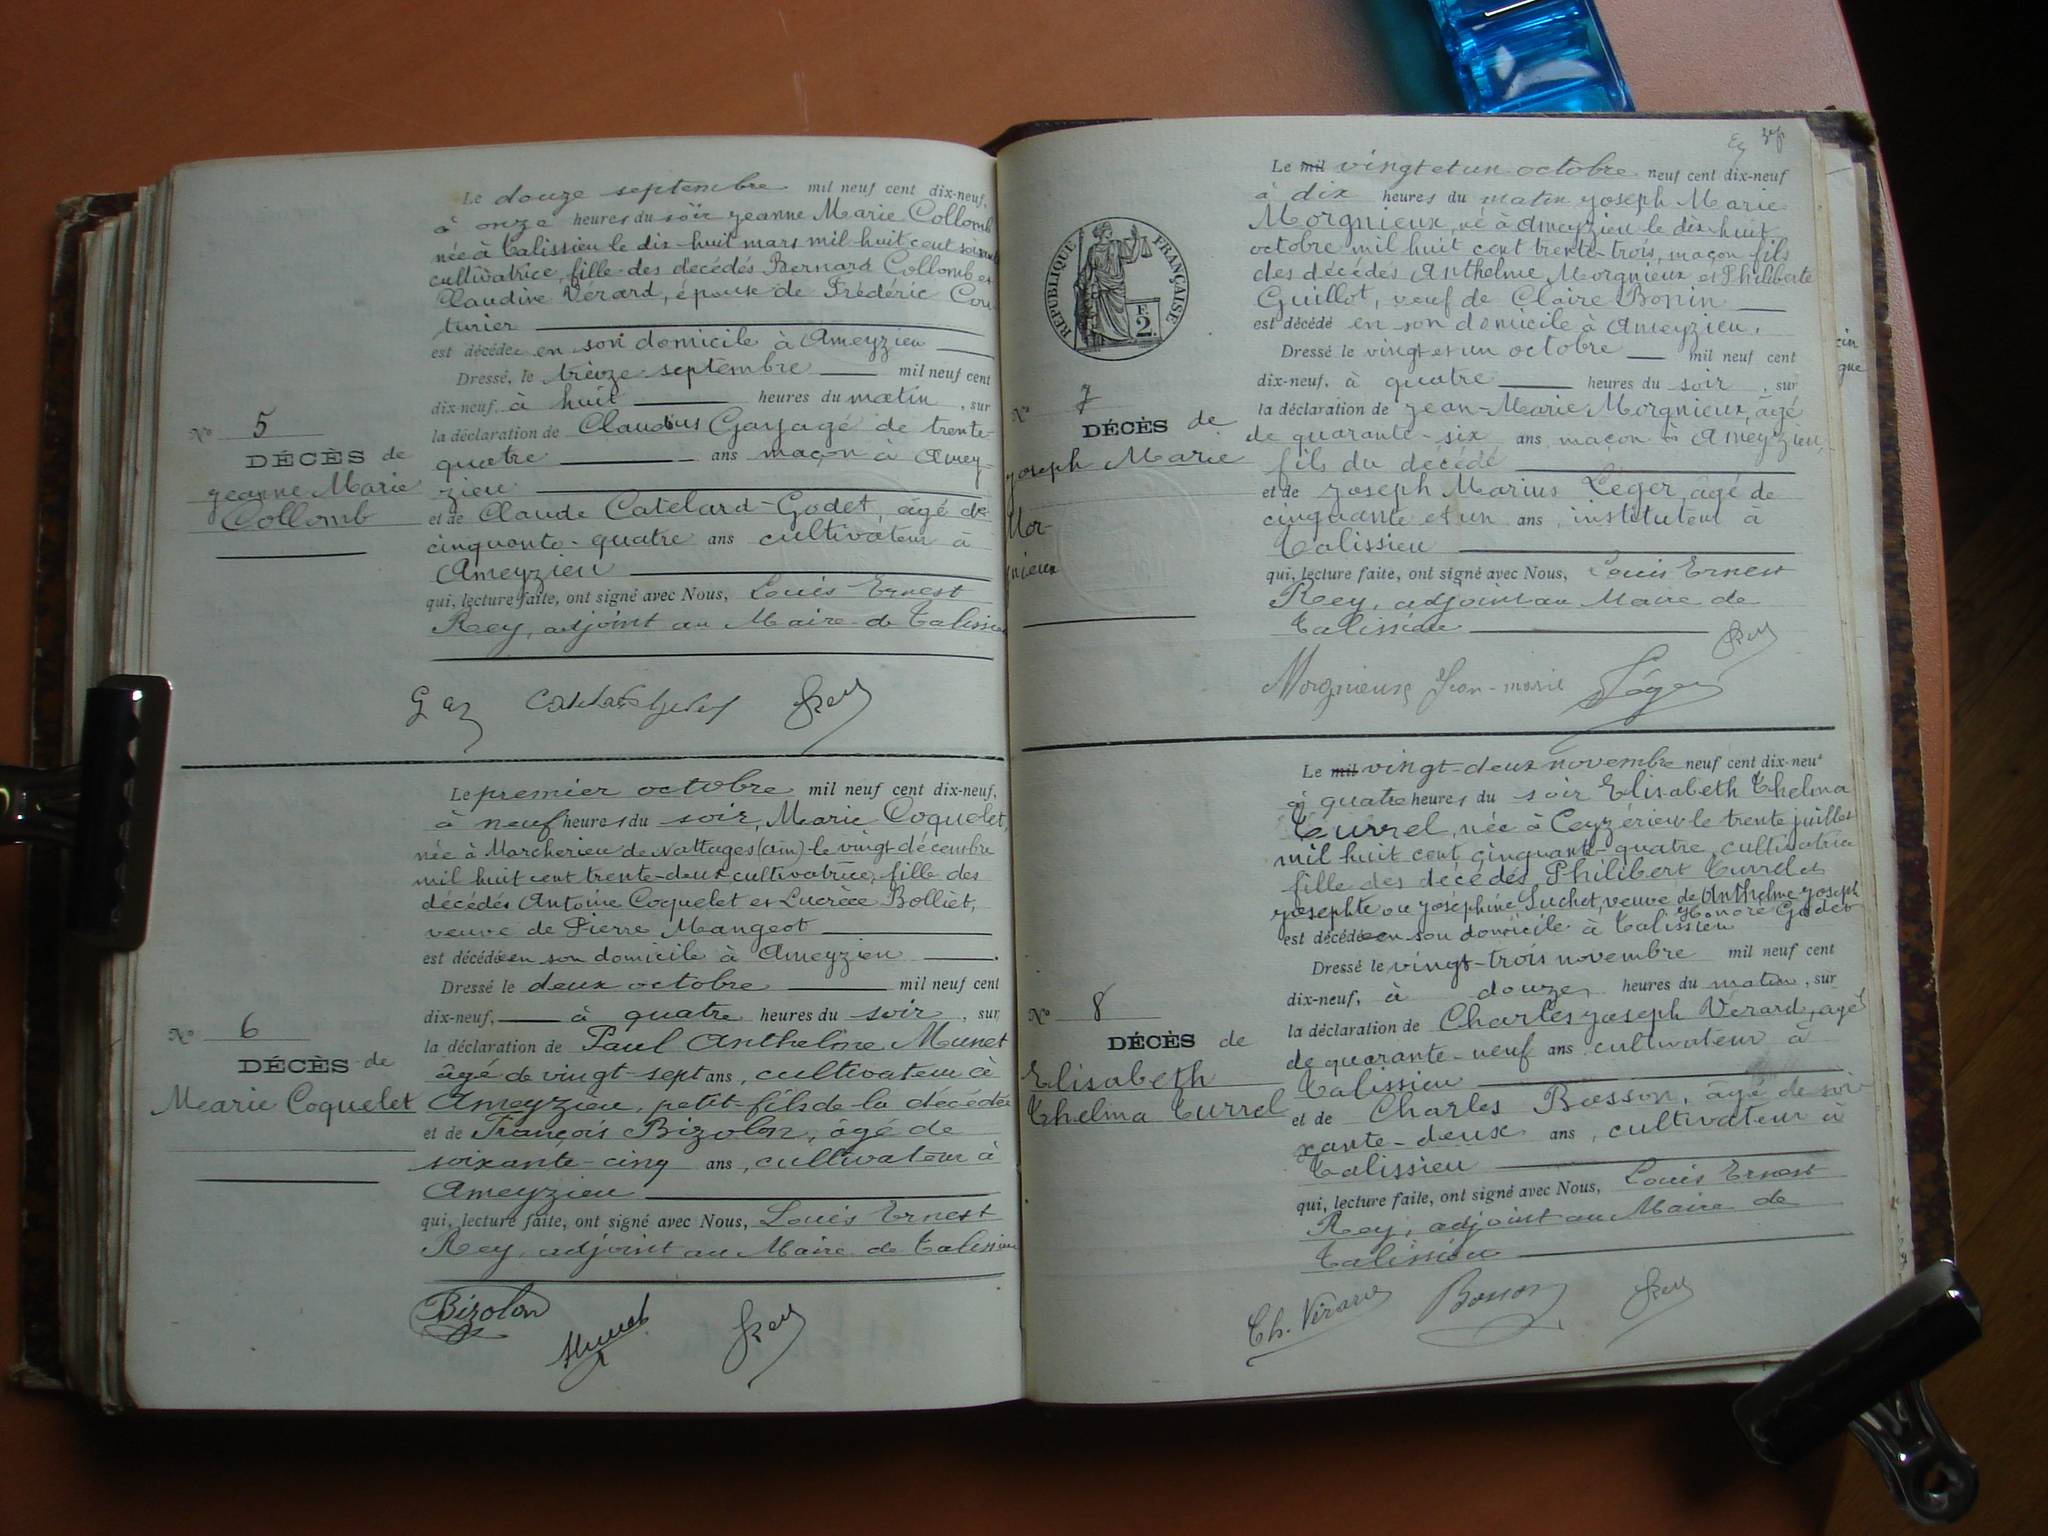 Le douze septembre mil neuf cent dix-neuf,
à onze heures du soir Jeanne Marie Collomb
née à Talissieu le dix-huit mars mil huit cent soixante
cultivatrice, fille des décédés Bernard Collomb et
Claudine Vérard, épouse de Frédéric Cou-
turier
est décédée en son domicile à Ameyzieu
Dressé, le treize septembre mil neuf cent
dix-neuf, à huit heures du matin, sur
la déclaration de Claudius Gay agé de trente-
quatre ans maçon à Amey-
zieu
et de Claude Catelard-Godet, âgé de
cinquante-quatre ans cultivateur à
Ameyzieu
qui, lecture faite, ont signé avec Nous, Louis Ernest
Rey, adjoint au Maire de Talissieu
N° 5
DÉCÈS de
Jeanne Marie
Collomb
Gay Rey
Le premier octobre mil neuf cent dix-neuf,
à neuf heures du soir, Marie Coquelet,
née à Marcherieu de Nattages (Ain) le vingt décembre
mil huit cent trente-deux, cultivatrice, fille des
décédés Antoine Coquelet et Lucrèce Bolliet,
veuve de Pierre Mangeot
est décédée en son domicile à Ameyzieu
Dressé le deux octobre mil neuf cent
dix-neuf, à quatre heures du soir, sur
la déclaration de Paul Anthelme Munet
âgé de vingt-sept ans, cultivateur à
Ameyzieu, petit-fils de la décédée
et de François Bizolon, âgé de
soixante-cinq ans, cultivateur à
Ameyzieu
qui, lecture faite, ont signé avec Nous, Louis Ernest
Rey, adjoint au Maire de Talissieu
N° 6
DÉCÈS de
Marie Coquelet
Bizolon Munet Rey
Le mil vingt et un octobre neuf cent dix-neuf
à dix heures du matin Joseph Marie
Morgnieux, né à Ameyzieu le dix huit
octobre mil huit cent trente-trois, maçon fils
des décédés Anthelme Morgnieux et Philiberte
Guillot, veuf de Claire Bonin
est décédé en son domicile à Ameyzieu.
Dressé le vingt et un octobre mil neuf cent
dix-neuf, à quatre heures du soir, sur
la déclaration de Jean-Marie Morgnieux, âgé
de quarante-six ans maçon à Ameyzieu,
fils du décédé
et de Joseph Marius Léger, âgé de
cinquante et un ans, instituteur à
Talissieu
qui, lecture faite, ont signé avec Nous, Louis Ernest
Rey, adjoint au Maire de
Talissieu
RÉPUBLIQUE FRANÇAISE
F.
2.
N° 7
DÉCÈS de
Joseph Marie
Mor-
gnieux
Rey
Morgnieux Jean-marie Léger
Le mil vingt-deux novembre neuf cent dix-neuf
à quatre heures du soir Elisabeth Thelma
Turrel, née à Ceyzérieu le trente juillet
mil huit cent cinquante-quatre, cultivatrice
fille des décédés Philibert Turrel et
Josephte ou Joséphine Suchet, veuve de Anthelme Joseph
Honoré Godet
est décédée en son domicile à Talissieu
Dressé le vingt-trois novembre mil neuf cent
dix-neuf, à douze heures du matin, sur
la déclaration de Charles Joseph Verard, âgé
de quarante-neuf ans cultivateur à
Talissieu
et de Charles Bosson, âgé de soi-
xante-deux ans, cultivateur à
Talissieu
qui, lecture faite, ont signé avec Nous, Louis Ernest
Rey, adjoint au Maire de
Talissieu
N° 8
DÉCÈS de
Elisabeth
Thelma Turrel
Ch. Vérard Bosson Rey